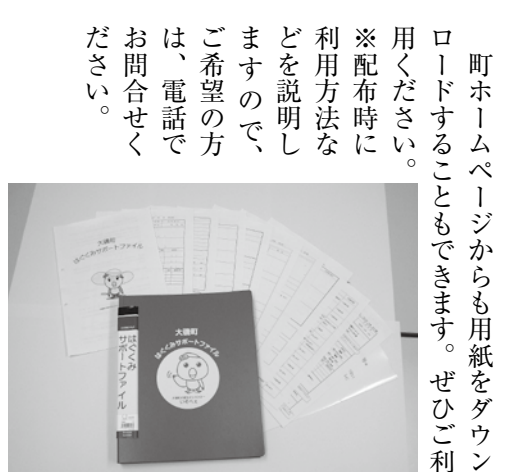 町ホームページからも用紙をダウン
ロードすることもできます。ぜひご利
用ください。
※配布時に
利用方法な
どを説明し
ますので、
ご希望の方
は、電話で
お問合せく
ださい。
大磯町
はぐくみサポートファイル
大磯町
はぐくみサポートファイル
はぐくみ
サポートファイル